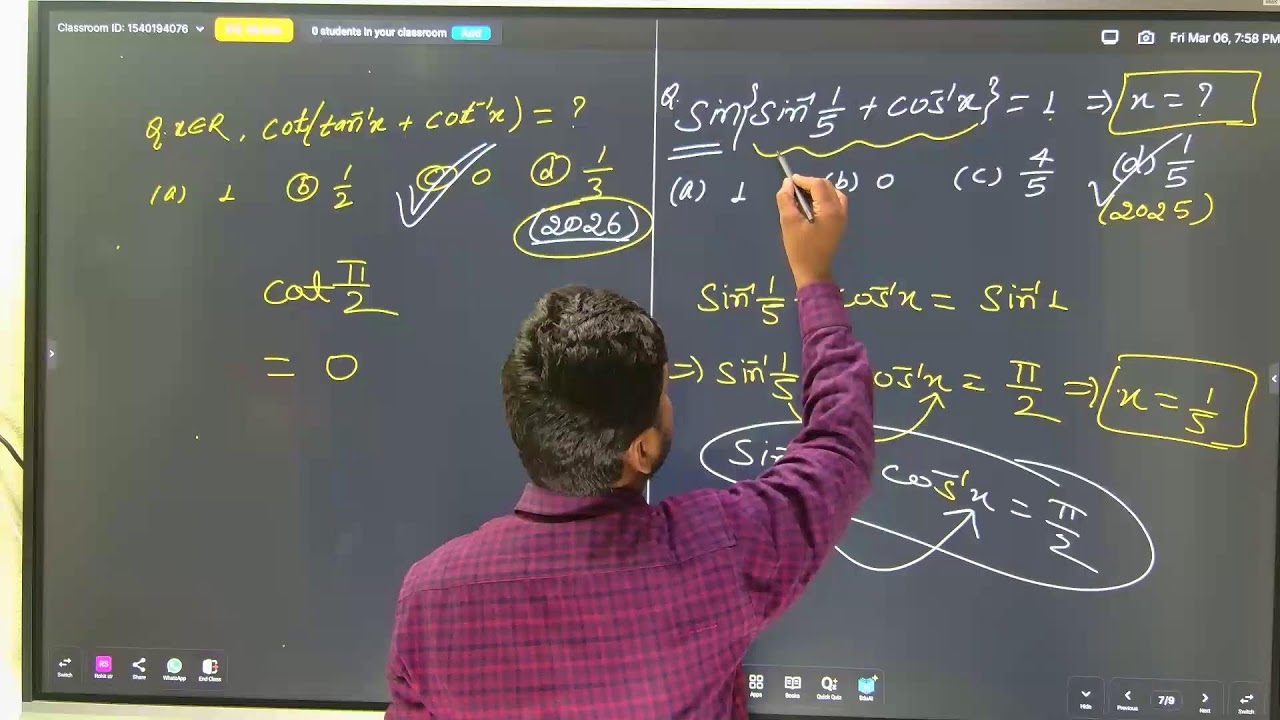 Classroom ID: 1540194076
0 students in your classroom Add
Fri Mar 06, 7:58 PM
Q. x∈R, cot(tan⁻¹x + cot⁻¹x) = ?
(a) 1 (b) 1/2 (c) 0 (d) 1/3
(2026)
cot π/2
= 0
Q. Sin{Sin⁻¹ 1/5 + cos⁻¹x} = 1 ⇒ x = ?
(a) 1 (b) 0 (c) 4/5 (d) 1/5
(2025)
Sin⁻¹ 1/5 cos⁻¹x = Sin⁻¹ 1
⇒ Sin⁻¹ 1/5 cos⁻¹x = π/2 ⇒ x = 1/5
cos⁻¹x = π/2
Switch Rohit sir Share WhatsApp End Class Apps Books Quick Quiz EduAI Hide Previous 7/9 Next Switch